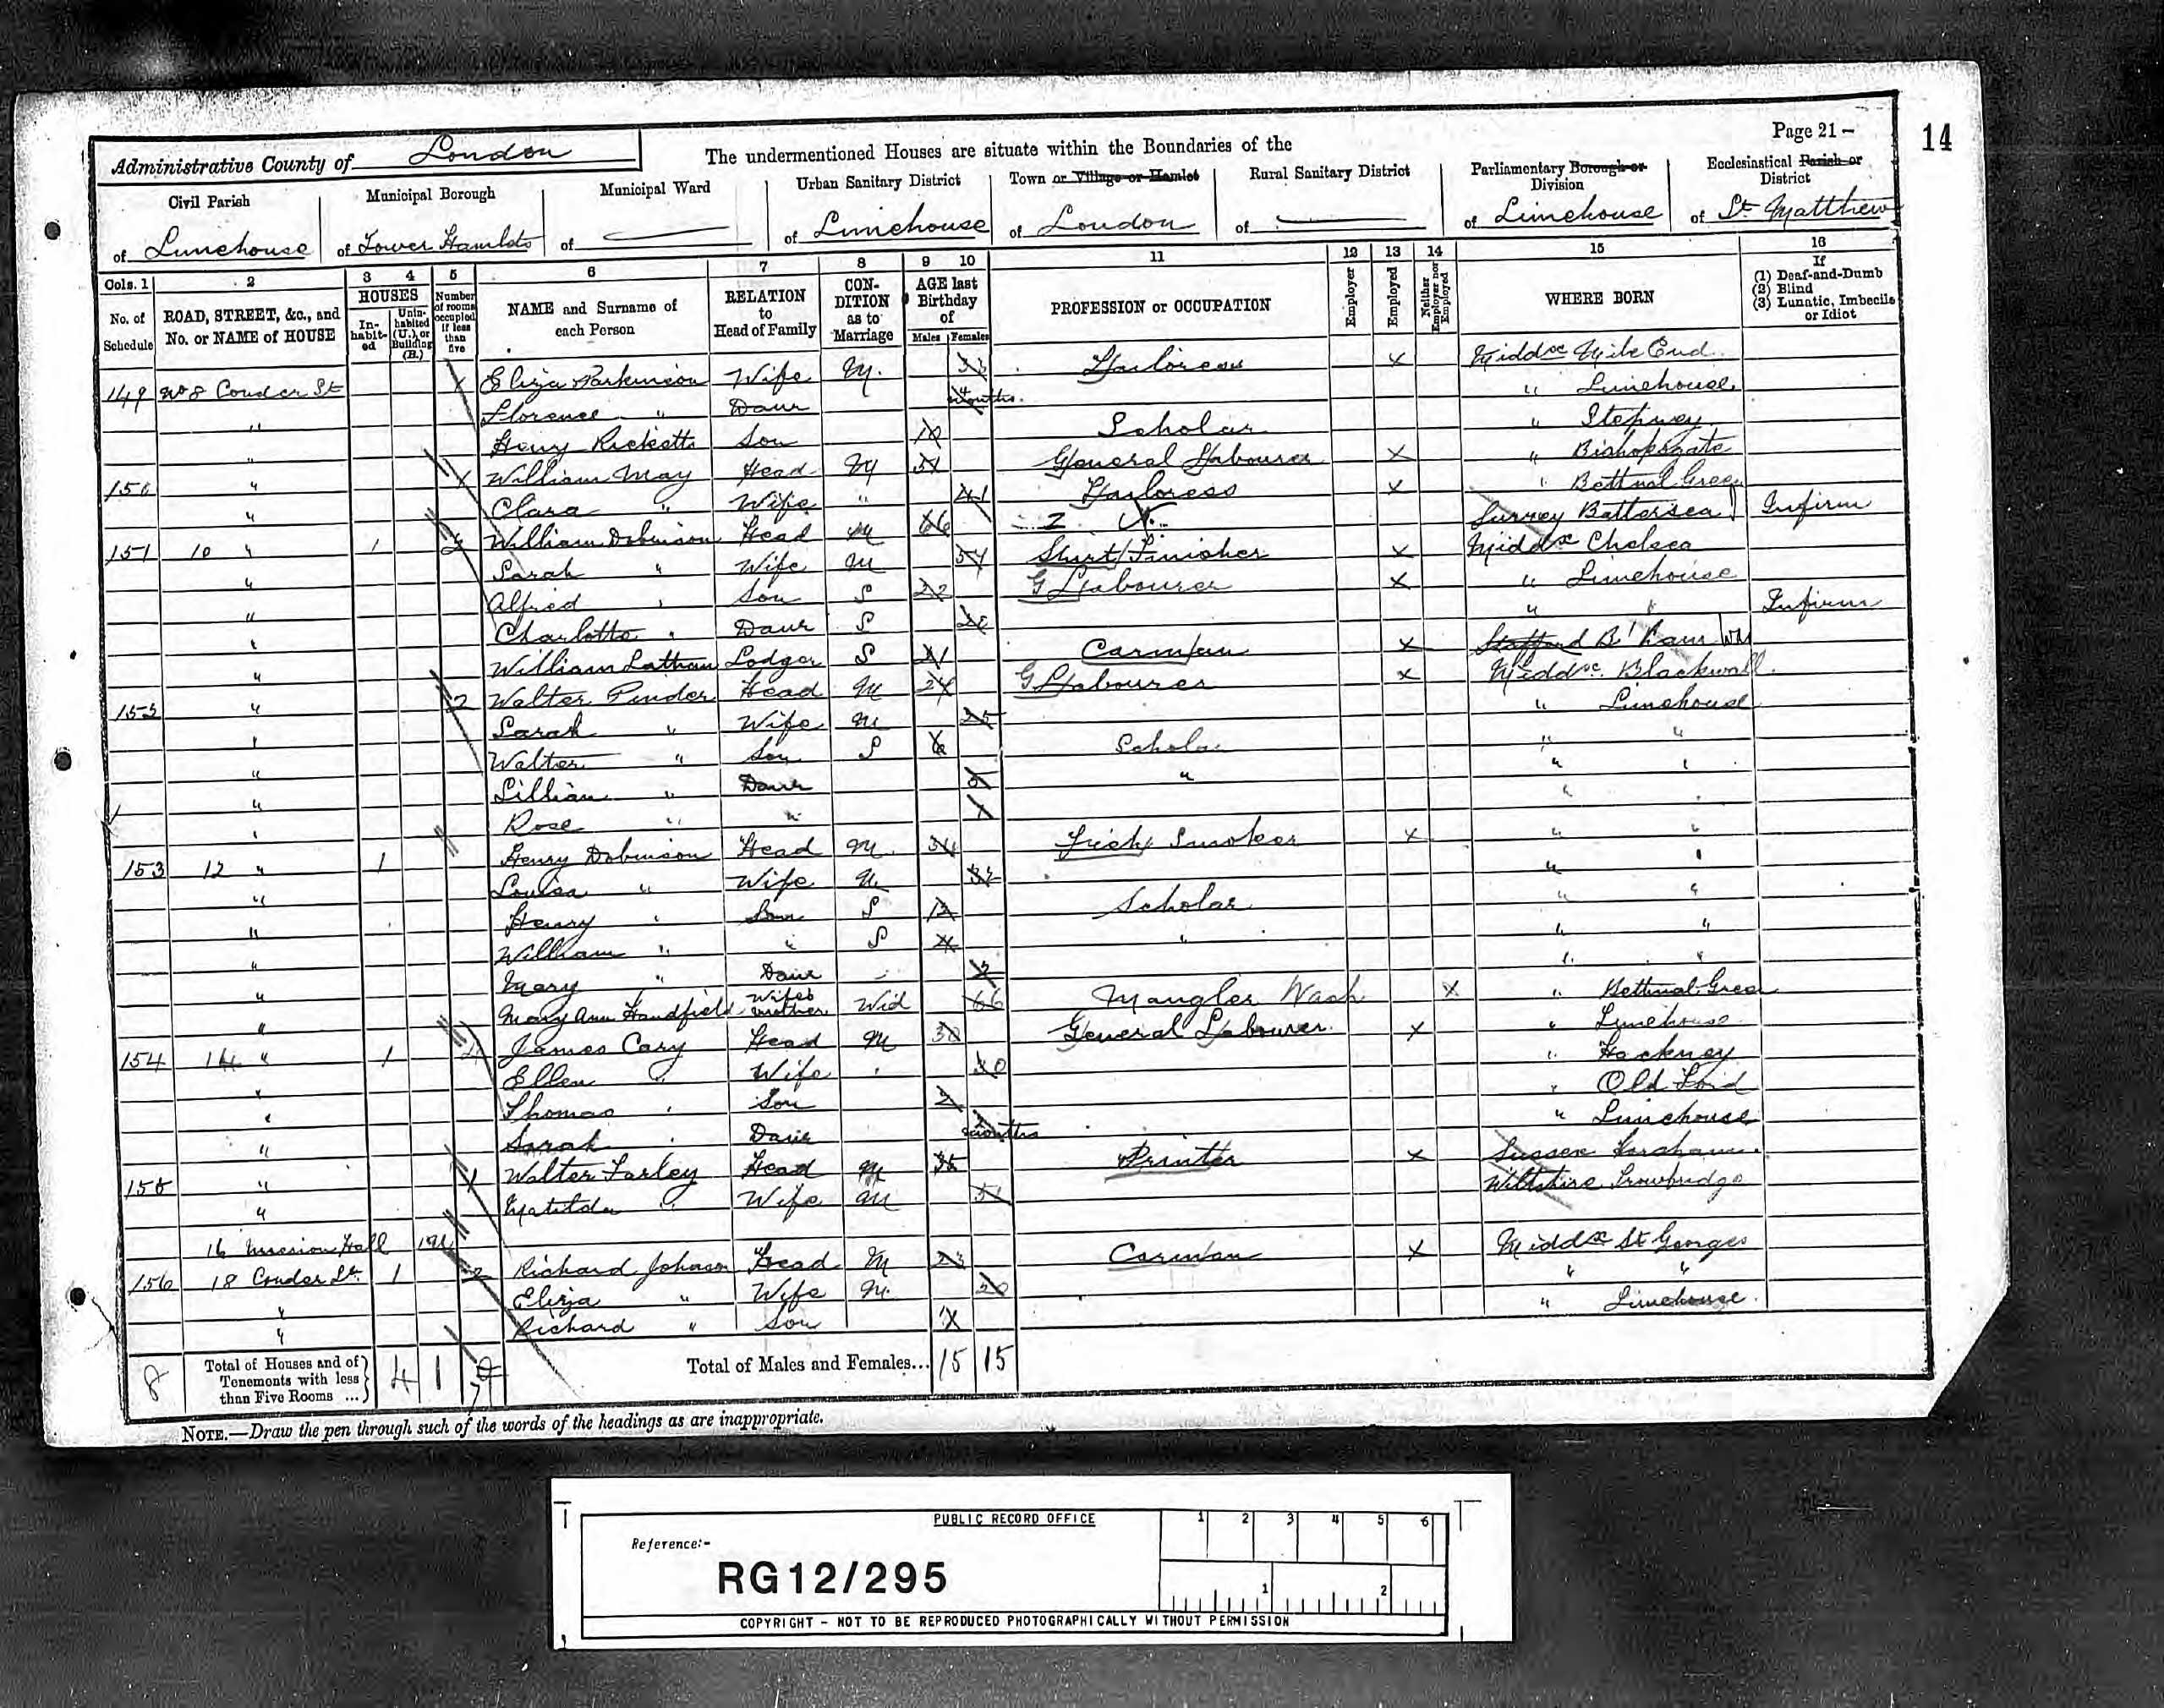 Page 21 -
14
Administrative County of London
The undermentioned Houses are situate within the Boundaries of the
Civil Parish of Limehouse
Municipal Borough of Tower Hamlets
Municipal Ward of —
Urban Sanitary District of Limehouse
Town or Village or Hamlet of London
Rural Sanitary District of —
Parliamentary Borough or Division of Limehouse
Ecclesiastical Parish or District of St Matthew
Cols. 1 2 3 4 5 6 7 8 9 10 11 12 13 14 15 16
No. of Schedule
ROAD, STREET, &c., and No. or NAME of HOUSE
HOUSES
In-habit-ed
Unin-habited (U.), or Building (B.)
Number of rooms occupied if less than five
NAME and Surname of each Person
RELATION to Head of Family
CON-DITION as to Marriage
AGE last Birthday of
Males Females
PROFESSION or OCCUPATION
Employer
Employed
Neither Employer nor Employed
WHERE BORN
If
(1) Deaf-and-Dumb
(2) Blind
(3) Lunatic, Imbecile or Idiot
149 No 8 Conder St Eliza Parkinson Wife M. 33 Tailoress X Middsx Mile End
" Florence " Daur months " Limehouse
" Henry Ricketts Son 10 Scholar " Stepney
150 " 1 William May Head M 51 General Labourer X " Bishopsgate
" Clara " Wife " 41 Tailoress X " Bethnal Green
151 10 " 1 William Dobinson Head M 66 Surrey Battersea Infirm
" Sarah " Wife M 54 Shirt Finisher X Middsx Chelsea
" Alfred " Son S 22 G Labourer X " Limehouse
" Charlotte " Daur S " " Infirm
" William Latham Lodger S 21 Carman X Stafford B'ham
152 " 2 Walter Pinder Head M 24 G Labourer X Middsx Blackwall
" Sarah " Wife M 25 " Limehouse
" Walter " Son S 6 Scholar " "
" Lillian " Daur " " "
" Rose " " " "
153 12 " 1 Henry Dobinson Head M 34 Fish Smoker X " "
" Louisa " Wife M 32 " "
" Henry " Son S 12 Scholar " "
" William " " S " " "
" Mary " Daur " "
" Mary Ann Handfield Wifes mother Wid 66 Mangler Wash X " Bethnal Green
154 14 " 1 James Cary Head M 30 General Labourer X " Limehouse
" Ellen " Wife " 30 " Hackney
" Thomas " Son 2 " Old Ford
" Sarah " Daur months " Limehouse
155 " 1 Walter Farley Head M 35 Printer X Sussex Horsham
" Matilda " Wife M 51 Wiltshire Trowbridge
16 Mission Hall 1
156 18 Conder St 1 2 Richard Johnson Head M 23 Carman X Middsx St Georges
" Eliza " Wife M 20 " "
" Richard " Son " Limehouse
8 Total of Houses and of Tenements with less than Five Rooms ... 4 1 Total of Males and Females... 15 15
NOTE.—Draw the pen through such of the words of the headings as are inappropriate.
PUBLIC RECORD OFFICE
1 2 3 4 5 6
Reference:-
RG12/295
1 2
COPYRIGHT - NOT TO BE REPRODUCED PHOTOGRAPHICALLY WITHOUT PERMISSION